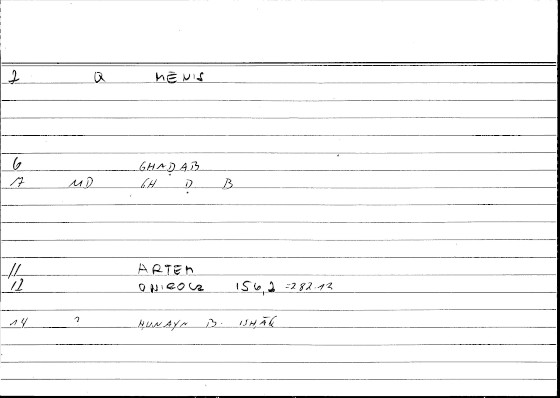 1 Q MĒNIS
6 GHAḌAB
7 MD GH Ḍ B
11 ARTEM
12 ONIROCR 156,2 =282.12
14 2 ḤUNAYN B. ISḤĀḲ